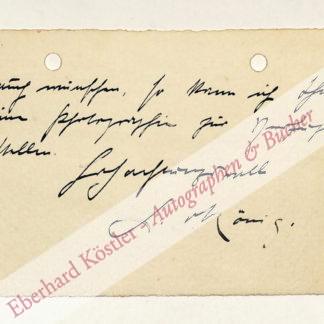 auch wünschen, so kann ich Ihn
eine Photographie zur
stellen.
Hochachtungsvoll
König.
Eberhard Köstler - Autographen & Bücher